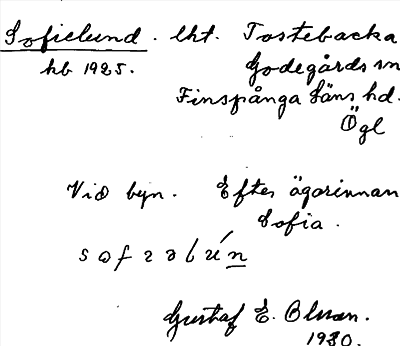 Sofielund. lht. Tostebacka
hb 1925. Godegårds sn
Finspånga läns hd.
Ögl
Vid byn. Efter ägarinnan
Sofia.
Gustaf E. Olsson.
1930.